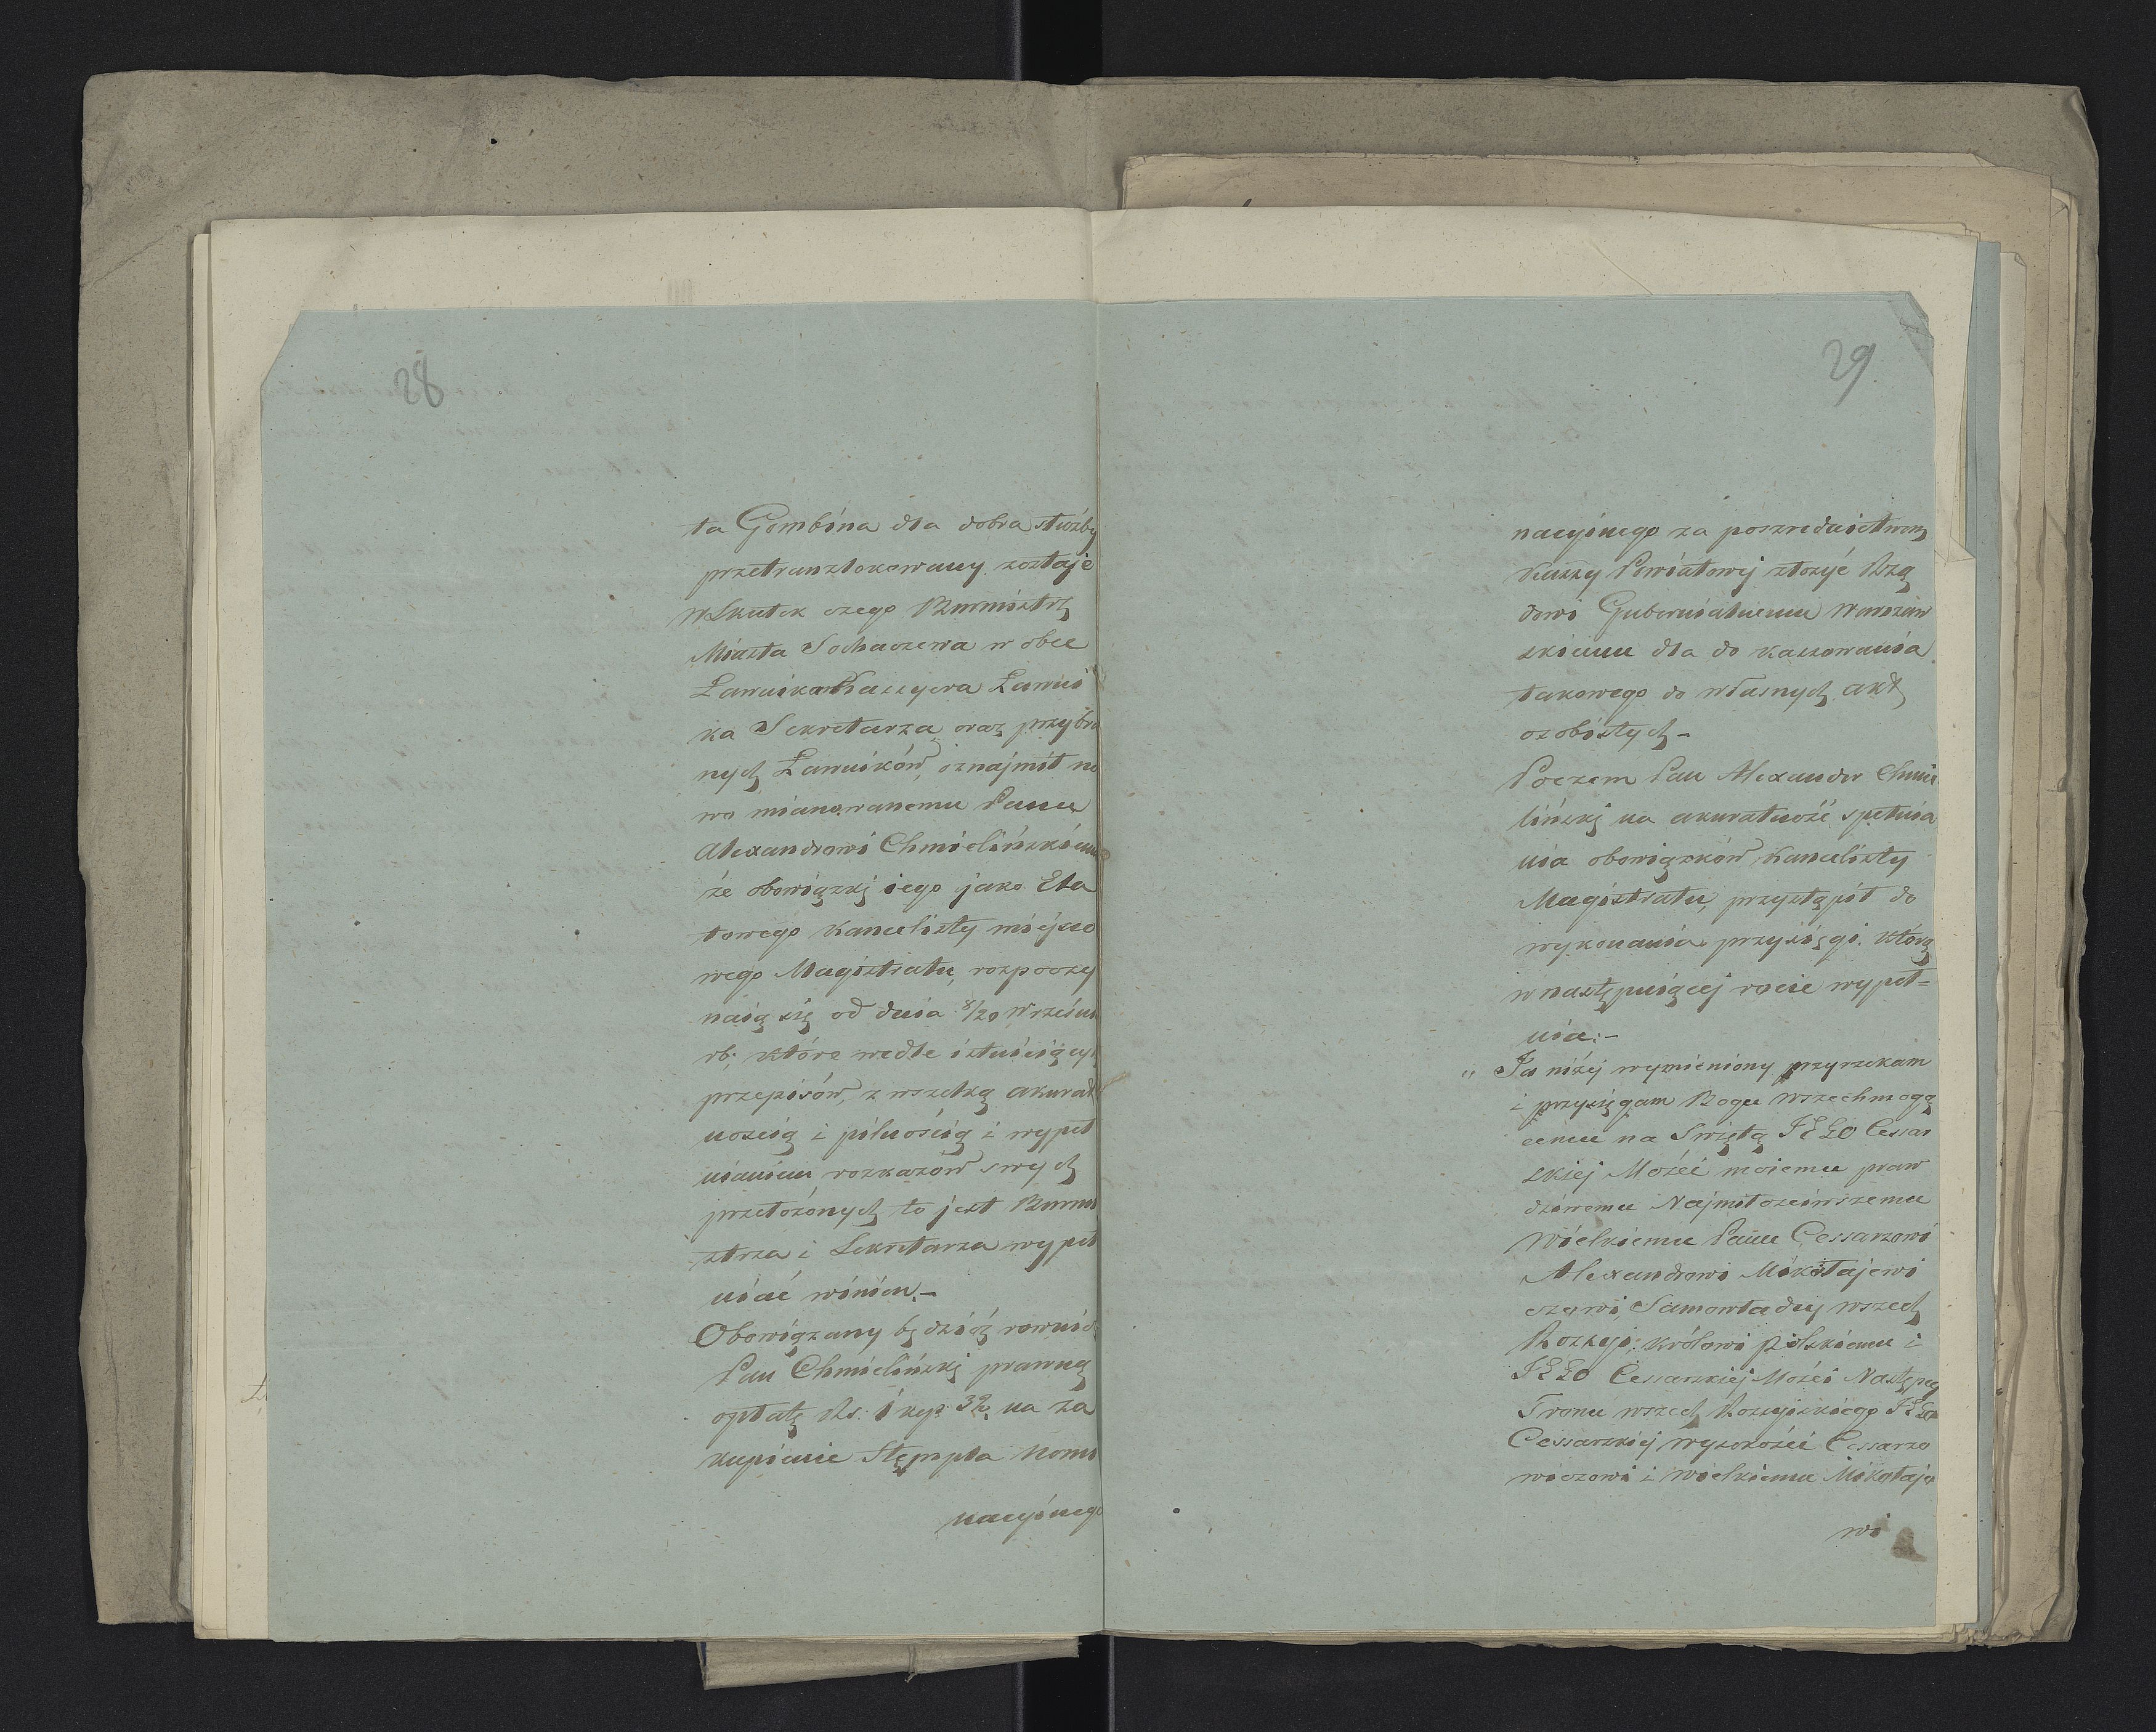 28
ta Gombina dla dobra służby
przetranzlokowany zostaje
W Skutek czego Burmistrz
Miasta Sochaczewa w obec
Ławnika Kassyera Ławni
ka Sekretarza oraz przybra
nych Ławników, oznajmił no
wo mianowanemu Panu
Alexandrowi Chmielińskiemu
że obowiązki iego jako Eta
towego Kancelisty miejsco
wego Magistratu, rozpoczy
naią się od dnia 8/20 Wrześni
rb; które wedle istnieiącyc
przepisów, z wszelką akurat
nością i pilnością i wypeł
nianiem rozkazów swych
przełożonych to jest Burmi
strza i Sekretarza wypeł
niać winien.-
Obowiązany będzież rownie
Pan Chmieliński prawną
opłatę Rs. 1 kop 32 na za
kupienie Stępmpla Nomi
nacyinego
29
nacyinego za poszrednictwem
Kassy Powiatowej złożyć Rzą
dowi Gubernialnemu Warszaw
skiemu dla do kassowania
takowego do własnych akt
osobistych -
Poczem Pan Alexander Chmie
liński na akuratność spełnia
nia obowiązków Kancelisty
Magistratu, przystąpił do
wykonania przysięgi. którą
w następuiącej rocie wypeł=
nia:-
" Ja niżej wymieniony przyrzekam
i przysięgam Bogu Wszechmogą
cemu na Swiętą JEGO Cessar
skiej Mości moiemu praw
dziwemu Najmiłosciwszemu
Wielkiemu Panu Cessarzowi
Alexandrowi Mikołajewi
czowi, Samowładcy wszech
Rossyi; królowi polskiemu i
JEGO Cessarskiej Mości Następcy
Tronu wszech Rossyiskiego JEGO
Cessarskiej wysokości Cessarze
wiczowi i Wielkiemu Mikołaje
wi